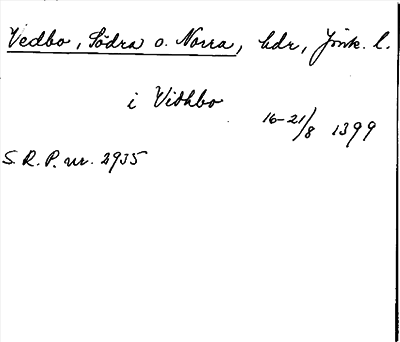 Vedbo, Södra o. Norra, hdr, Jönk. l.
i Vidhbo
16-21/8 1399
S.R.P. nr. 2935